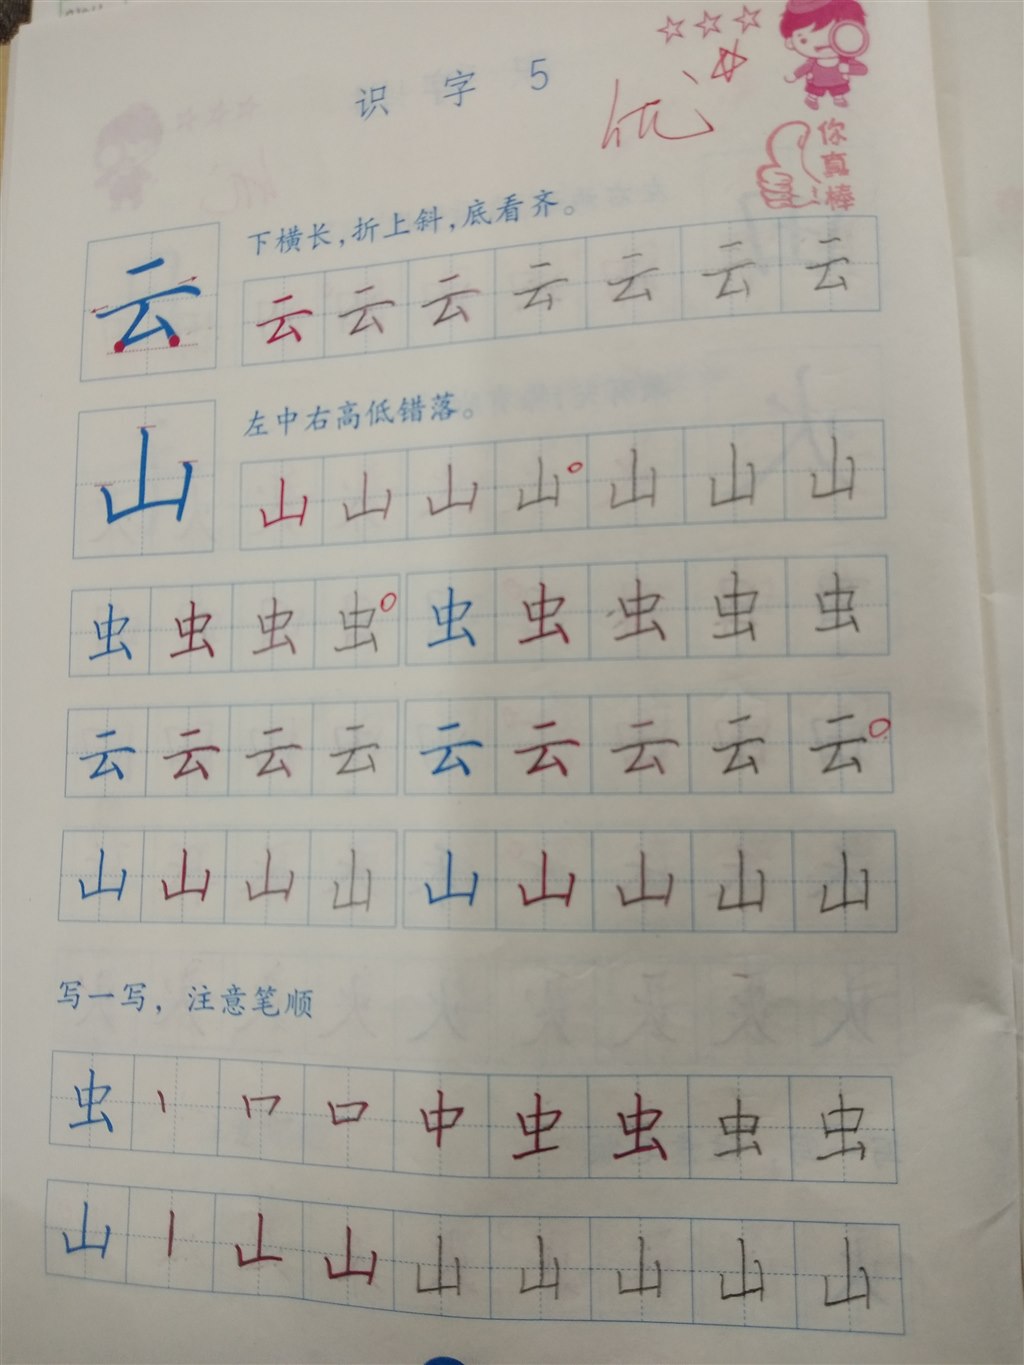 识字5
优
你真棒
云 下横长,折上斜,底看齐。
云云云云云云云
山 左中右高低错落。
山山山山山山山
虫虫虫虫虫虫虫虫虫
云云云云云云云云云
山山山山山山山山山
写一写，注意笔顺
虫丨口中虫虫虫虫
山丨山山山山山山